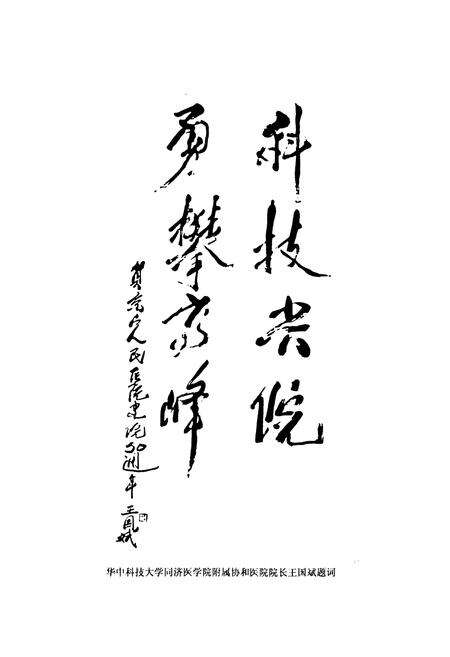 科技兴院
勇攀高峰
贺人民医院建院50週年 王国斌
华中科技大学同济医学院附属协和医院院长王国斌题词